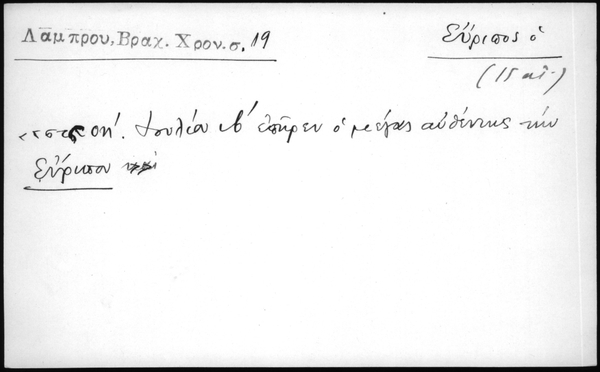 Λάμπρου, Βραχ. Χρον. σ. 19
Εὔριπος ὁ
(15 αἰ.)
οη΄. Ἰουλίου ιβ΄ ἐπῆρεν ὁ μέγας αὐθέντης τὴν
Εὔριπον